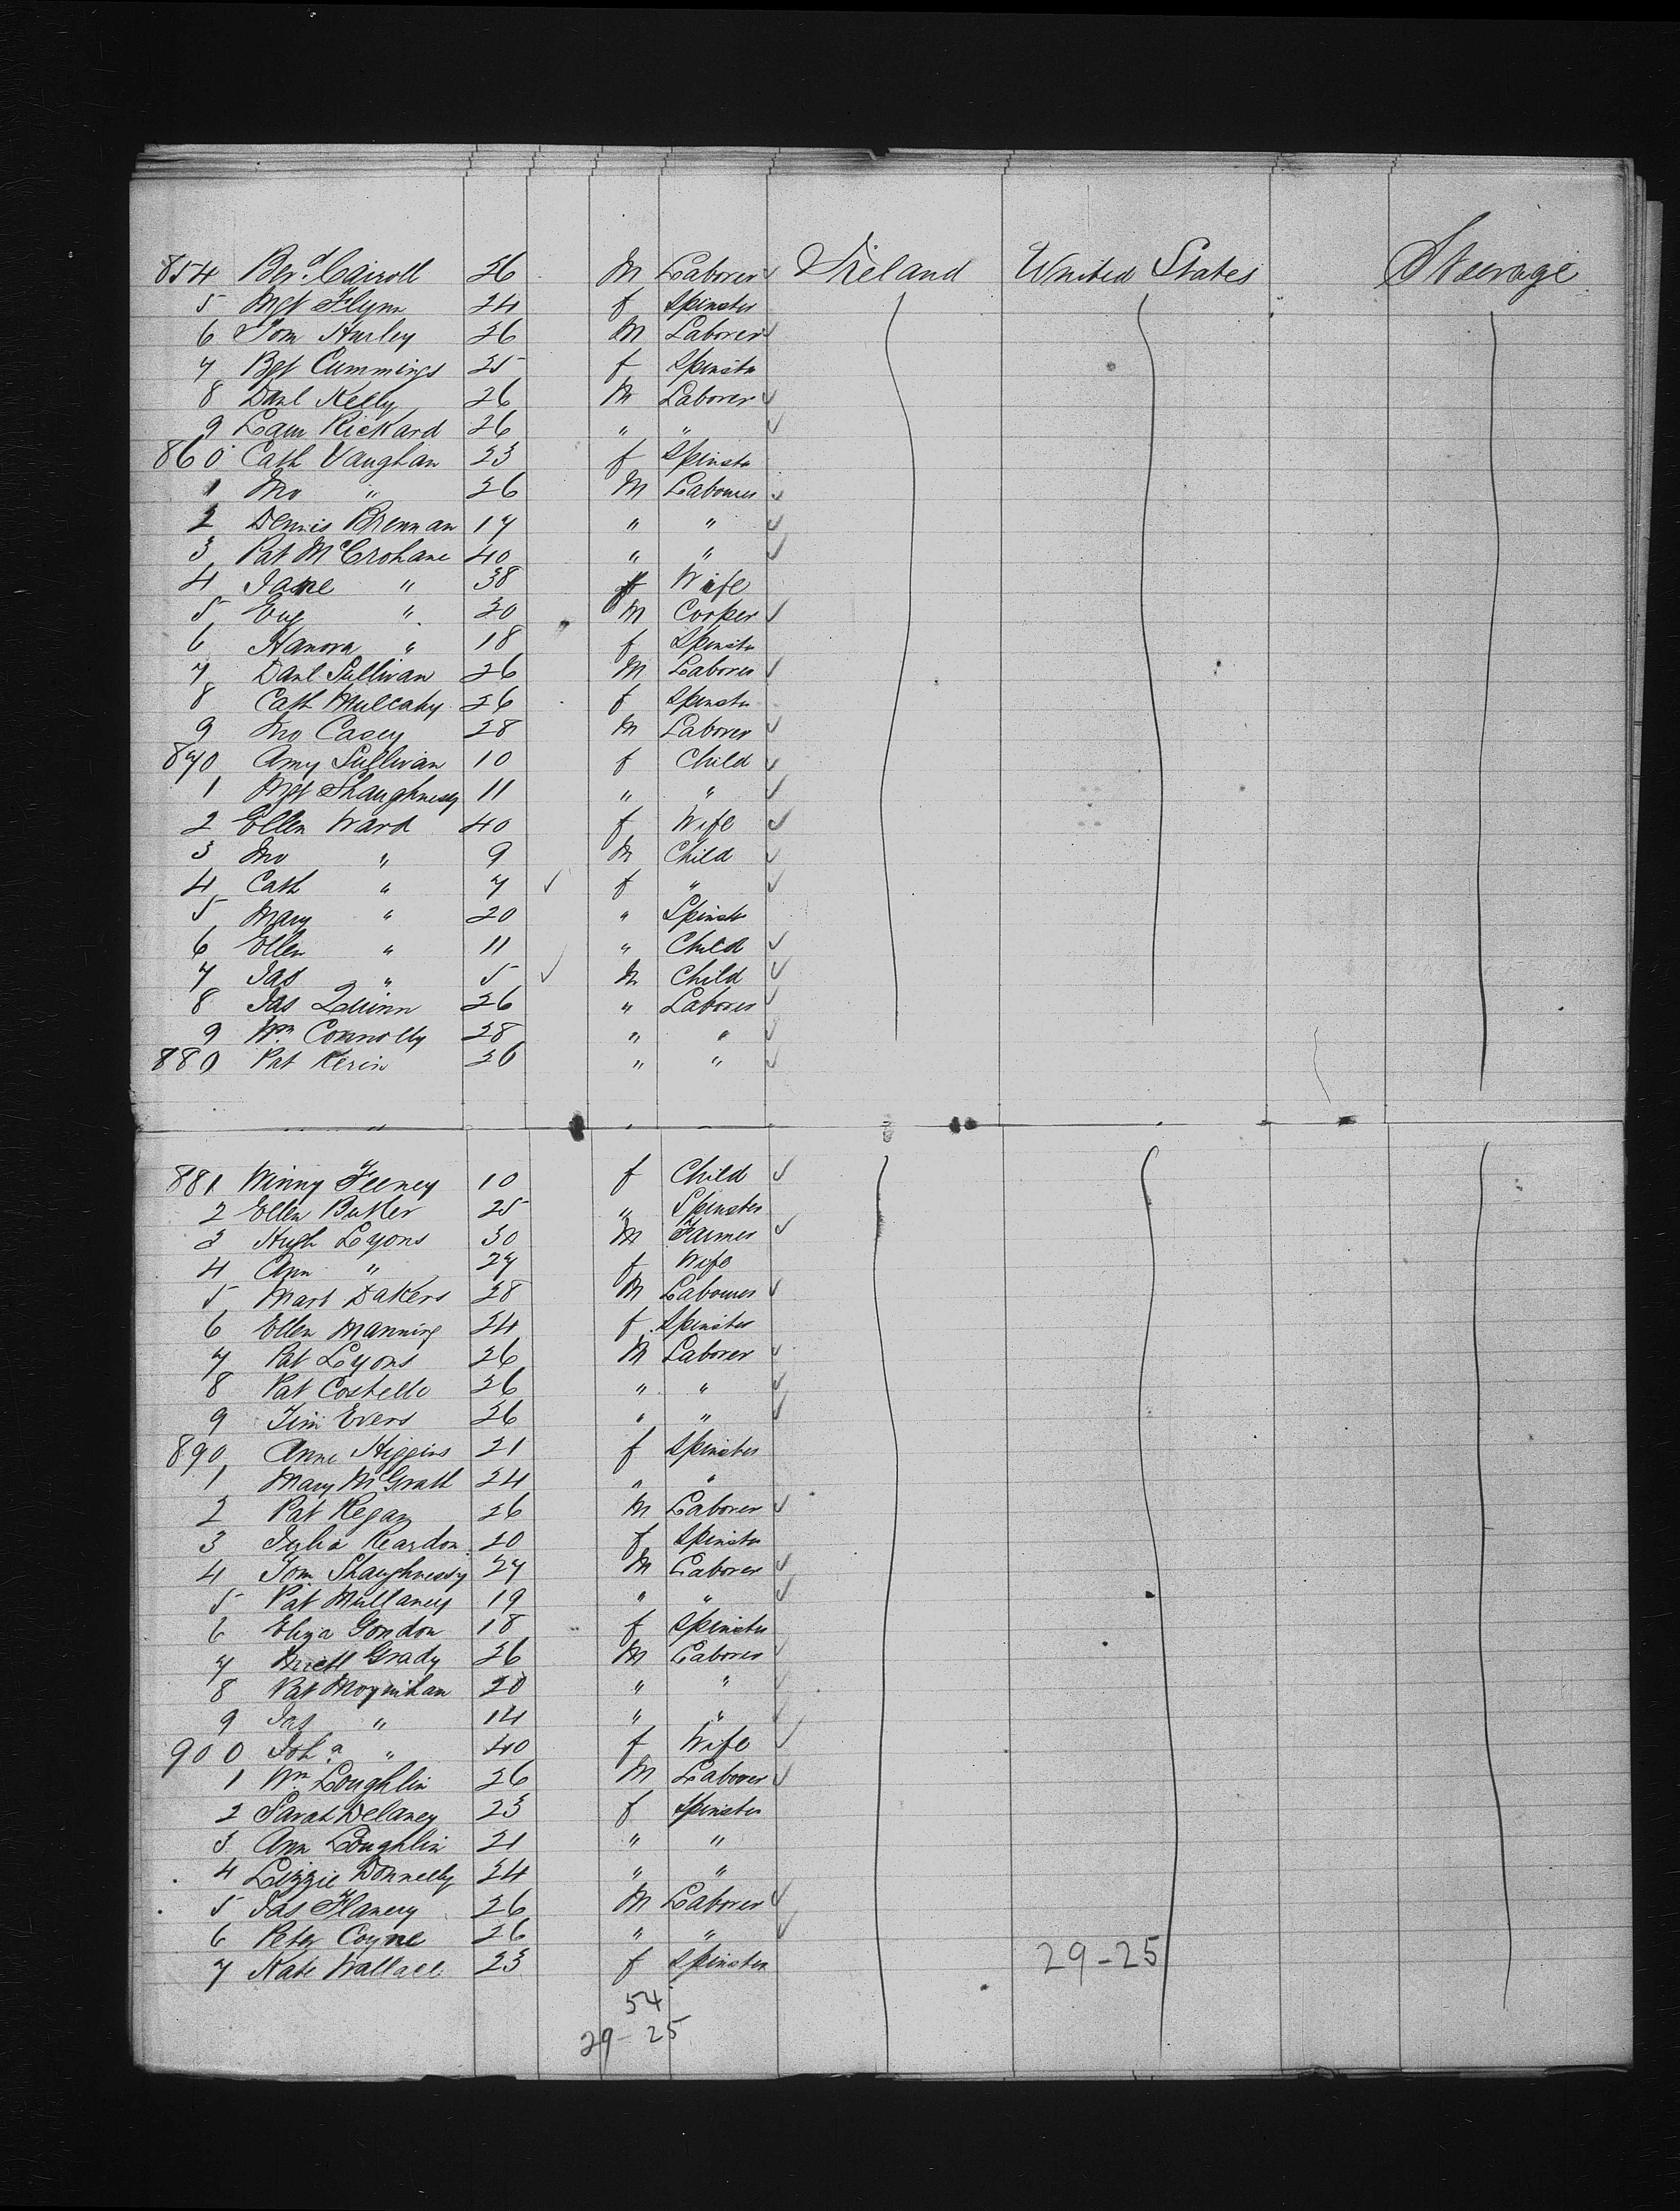 854 Bерd Cairoll 26 M Laborer Ireland United States Steerage
5 Mgt Flynn 24 f Spinster
6 Tom Hurley 26 M Laborer
7 Bgt Cummings 25 f Spinstr
8 Danl Kelly 26 M Laborer
9 Rickard 26 " "
860 Cath Vaughan 23 f Spinstr
1 Jno " 26 M Labourer
2 Dennis Brennan 17 " "
3 Pat McCrohane 40 " "
4 Jane " 38 f Wife
5 Eug " 20 M Cooper
6 Hanora " 18 f Spinstr
7 Danl Sullivan 26 M Laborer
8 Cath Mulcahy 26 f Spinstr
9 Jno Casey 28 M Laborer
870 Amy Sullivan 10 f Child
1 Mgt Shaughnessy 11 " "
2 Ellen Ward 40 f Wife
3 Jno " 9 M Child
4 Cath " 7 f "
5 Mary " 20 " Spinstr
6 Ellen " 11 " Child
7 Jas " 5 M Child
8 Jas Quinn 26 " Laborer
9 Wm Connolly 28 " "
880 Pat Kerin 26 " "
881 Winny Feeney 10 f Child
2 Ellen Butler 25 " Spinster
3 Hugh Lyons 30 M Farmer
4 Ann " 27 f Wife
5 Mart Dakers 28 M Labourer
6 Ellen Manning 24 f Spinster
7 Pat Lyons 26 M Laborer
8 Pat Costello 26 " "
9 Tim Evers 26 " "
890 Anne Higgins 21 f Spinster
1 Mary McGrath 24 " "
2 Pat Regan 26 M Laborer
3 Julia Reardon 20 f Spinstr
4 Tom Shaughnessy 27 M Laborer
5 Pat Mullaney 19 " "
6 Eliza Gordon 18 f Spinster
7 Michl Grady 26 M Laborer
8 Pat Moynihan 20 " "
9 Jas " 14 " "
900 Joha " 40 f Wife
1 Wm Loughlin 26 M Laborer
2 Sarah Delaney 23 f Spinster
3 Ann Loughlin 21 " "
4 Lizzie Donnelly 24 " "
5 Jas Flanery 26 M Laborer
6 Peter Coyne 26 " "
7 Kate Wallace 23 f Spinster 29-25
54
29-25